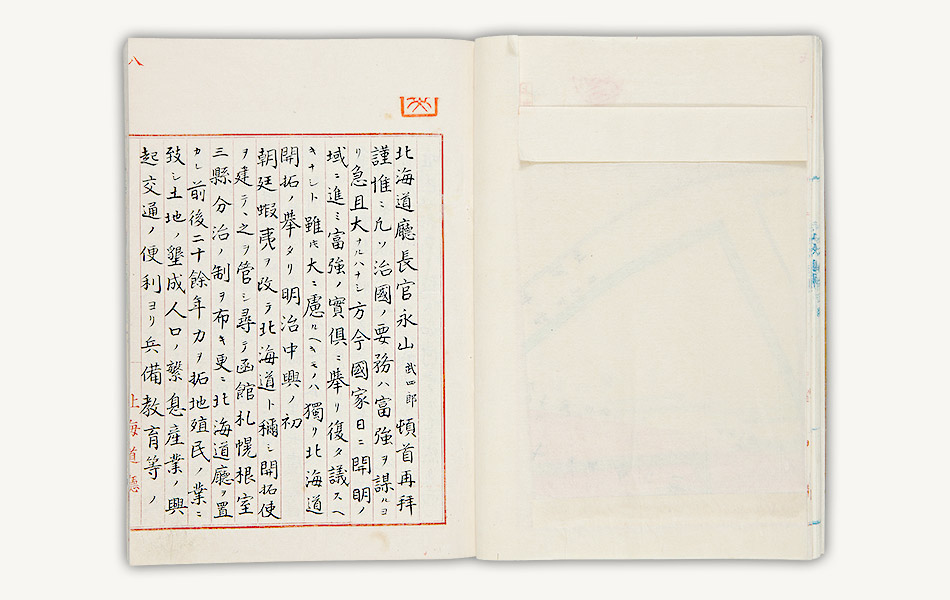 北海道廳長官永山武四郎頓首再拜
謹惟ニ凡ソ治國ノ要務ハ富強ヲ謀ルヨ
リ急且大ナルハナシ方今國家日ニ開明ノ
域ニ進ミ富強ノ實俱ニ擧リ復タ議スヘ
キナシト雖𪜈大ニ慮ルヘキモノハ獨リ北海道
開拓ノ擧タリ明治中興ノ初
朝廷蝦夷ヲ改テ北海道ト稱シ開拓使
ヲ建テヽ之ヲ管シ尋テ函館札幌根室
三縣分治ノ制ヲ布キ更ニ北海道廳ヲ置
カレ前後二十餘年力ヲ拓地殖民ノ業ニ
致シ土地ノ墾成人口ノ繁息産業ノ興
起交通ノ便利ヨリ兵備教育等ノ
八
北海道廳